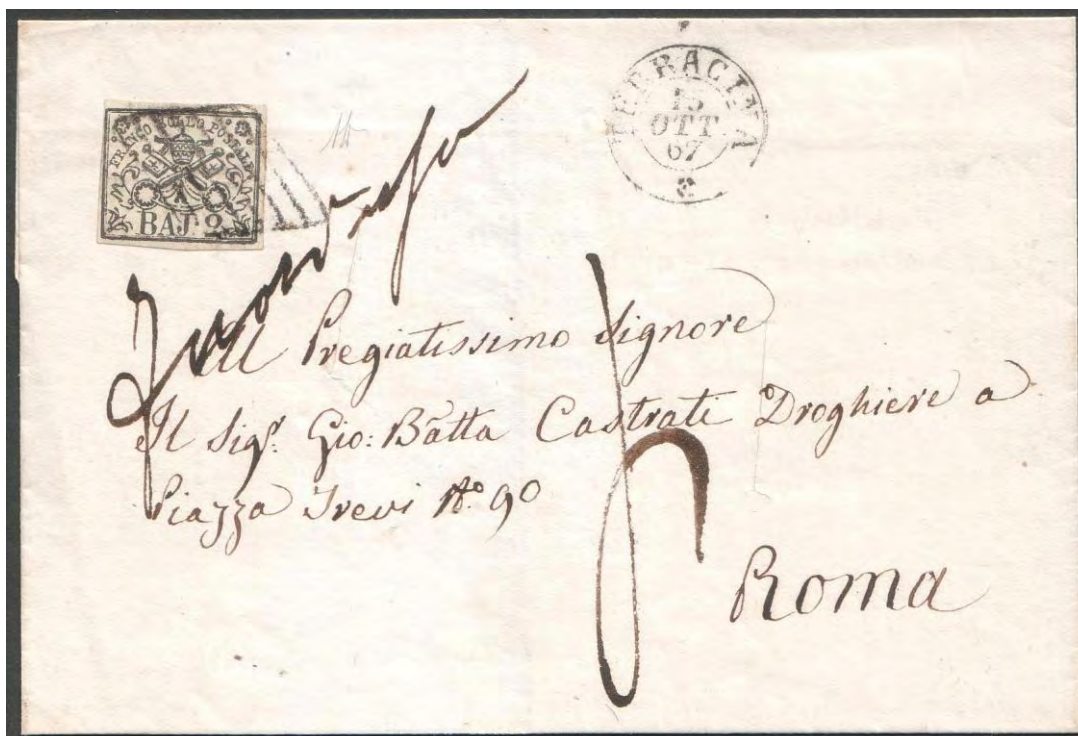 FRANCO BOLLO POSTALE
BAJ. 2
TERRACINA
15
OTT
67
All Pregiatissimo Signore
Il Sigr. Gio: Batta Castrati Droghiere a
Piazza Trevi No. 90
Roma